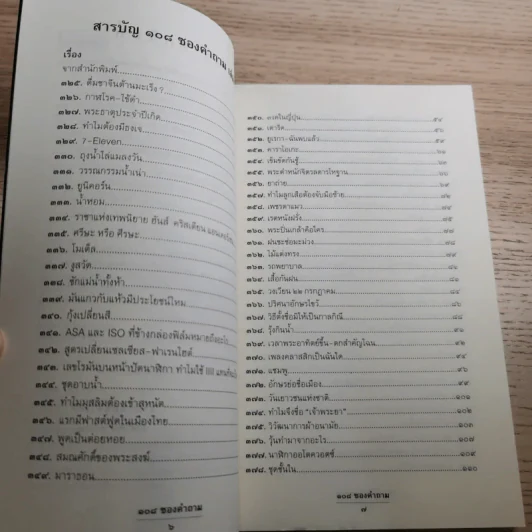 สารบัญ ๑๐๘ ซองคำถาม
เรื่อง
จากสำนักพิมพ์
๓๒๕. ดื่มชาจีนต้านมะเร็ง?
๓๒๖. กาฬโรค-ไข้ดำ
๓๒๗. พระธาตุประจำปีเกิด
๓๒๘. ทำไมต้องมีองเจ
๓๒๙. 7-Eleven
๓๓๐. ถุงน้ำไล่แมลงวัน
๓๓๑. วรรณกรรมน้ำเน่า
๓๓๒. ยูนิคอร์น
๓๓๓. น้ำหอม
๓๓๔. ราชาแห่งเทพนิยาย ฮันส์ คริสเตียน
๓๓๕. ศรีษะ หรือ ศีรษะ
๓๓๖. โมเต็ล
๓๓๗. งูสวัด
๓๓๘. ชักแม่น้ำทั้งห้า
๓๓๙. มันแกวกับแห้วมีประโยชน์ไหม
๓๔๐. กุ้งเปลี่ยนสี
๓๔๑. ASA และ ISO ที่ข้างกล่องฟิล์มหมายถึงอะไร
๓๔๒. สูตรเปลี่ยนเซลเซียส-ฟาเรนไฮต์
๓๔๓. เลขโรมันบนหน้าปัดนาฬิกา ทำไมใช้ IIII
๓๔๔. ชุดอาบน้ำ
๓๔๕. ทำไมมุสลิมต้องเข้าสุหนัต
๓๔๖. แรกมีฟาสต์ฟู้ดในเมืองไทย
๓๔๗. พูดเป็นต่อยหอย
๓๔๘. สมณศักดิ์ของพระสงฆ์
๓๔๙. มาราธอน
๑๐๘ ซองคำถาม
๖
๓๕๐. ในญี่ปุ่น ๕๔
๓๕๑. เตารีด ๕๖
๓๕๒. ยูเรกา-ฉันพบแล้ว
๓๕๓. คาราโอเกะ
๓๕๔. เซ็นชัดกันชู้
๓๕๕. พระตำหนักจิตรลดารโหฐาน
๓๕๖. ยาถ่าย
๓๕๗. ทำไมลูกเสือต้องจับมือซ้าย
๓๕๘. เพชรตาแมว
๓๕๙. เรตหนังฝรั่ง
๓๖๐. พระปิ่นเกล้าคือใคร
๓๖๑. ฝนชะช่อมะม่วง
๓๖๒. ไม้แต่งทรง
๓๖๓. รถพยาบาล
๓๖๔. เสื้อกันฝน
๓๖๕. วงเวียน ๒๒ กรกฎาคม
๓๖๖. ปริศนาอักษรไขว้
๓๖๗. วิธีตั้งชื่อมิให้เป็นกาลกิณี
๓๖๘. รุ้งกินน้ำ
๓๖๙. เวลาพระอาทิตย์ขึ้น-ตกสำคัญไฉน
๓๗๐. เพลงคลาสสิกเป็นฉันใด
๓๗๑. แชมพู
๓๗๒. อักษรย่อชื่อเมือง
๓๗๓. วันเยาวชนแห่งชาติ
๓๗๔. ทำไมจึงชื่อ "เจ้าพระยา" ๑๐๒
๓๗๕. วิวัฒนาการผ้าอนามัย ๑๐๓
๓๗๖. รุ้นทำมาจากอะไร ๑๐๗
๓๗๗. นาฬิกาออโตควอตซ์ ๑๐๙
๓๗๘. ชุดชั้นใน ๑๑๐
๑๐๘ ซองคำถาม
๗